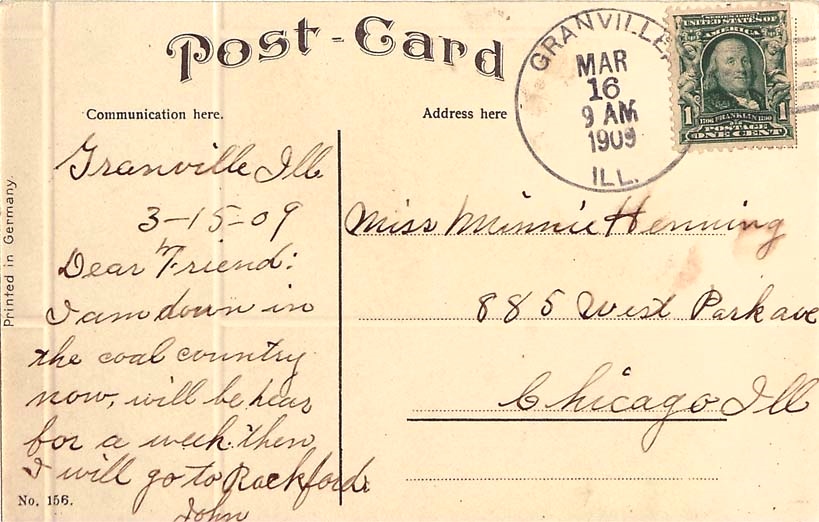 Post-Card
Communication here.
Address here
GRANVILLE
MAR
16
9 AM
1909
ILL.
SERIES 1902
UNITED STATES OF
AMERICA
1 1706 FRANKLIN 1790 1
POSTAGE
ONE CENT
Granville Ill
3-15-09
Dear Friend:
I am down in
the coal country
now, will be hear
for a week. then
I will go to Rockford.
John
Miss Minnie Henning
885 West Park ave
Chicago Ill
Printed in Germany.
No. 156.